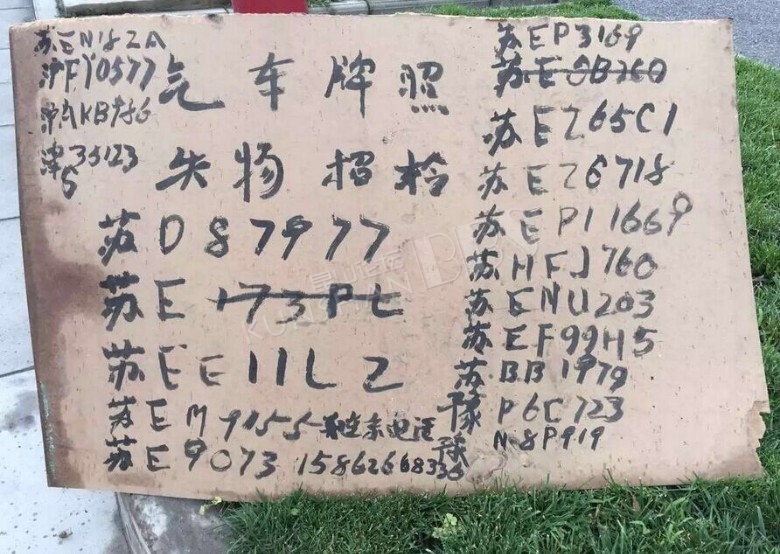 苏EN182A
沪FY0577
沪AKB786
津35123
汽车牌照
失物招检
苏D87977
苏E173PL
苏EE11L2
苏EM9155 联系电话
苏E9073 15862668335
苏EP3169
苏E0B760
苏EZ65C1
苏EZ6718
苏EP11669
苏HFJ760
苏ENU203
苏EF99H5
苏BB1979
豫P6C723
豫N8P919